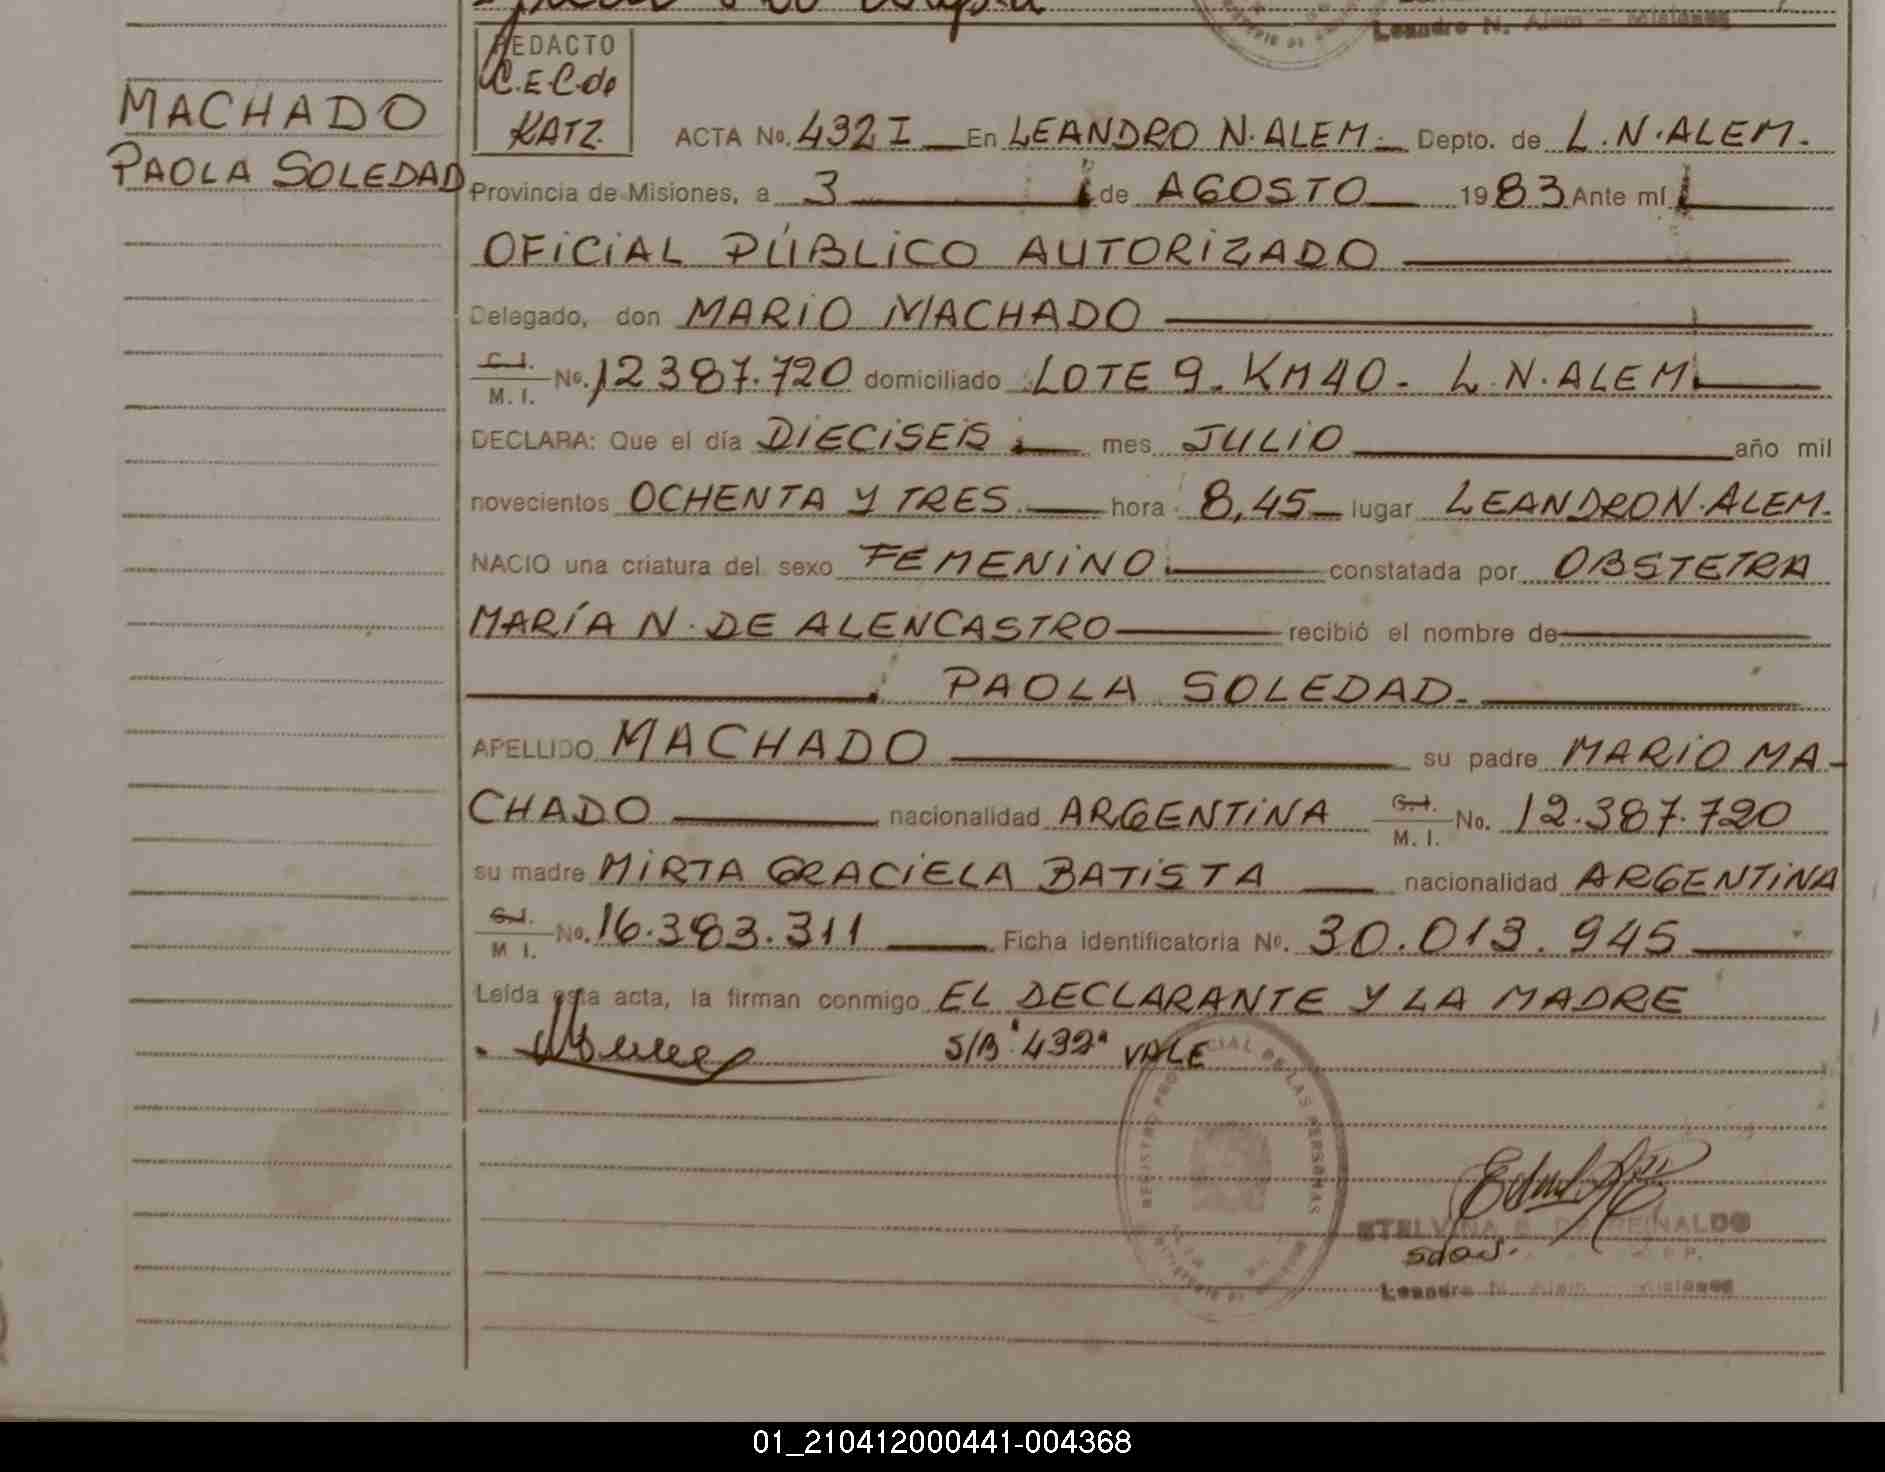 Leandro N. Alem - Misiones
REDACTO
C.E.C. de
KATZ.
MACHADO
PAOLA SOLEDAD
ACTA No. 432 I En LEANDRO N. ALEM. Depto. de L. N. ALEM.
Provincia de Misiones, a 3 de AGOSTO 1983 Ante mí
OFICIAL PÚBLICO AUTORIZADO
Delegado, don MARIO MACHADO
C.I.
M. I. No. 12387.720 domiciliado LOTE 9. KM 40. L. N. ALEM
DECLARA: Que el día DIECISEIS mes JULIO año mil
novecientos OCHENTA Y TRES hora 8,45 lugar LEANDRO N. ALEM.
NACIO una criatura del sexo FEMENINO constatada por OBSTETRA
MARÍA N. DE ALENCASTRO recibió el nombre de
PAOLA SOLEDAD.
APELLIDO MACHADO su padre MARIO MA-
CHADO nacionalidad ARGENTINA C.I. M. I. No. 12.387.720
su madre MIRTA GRACIELA BATISTA nacionalidad ARGENTINA
C.I.
M I. No. 16.383.311 Ficha identificatoria No. 30.013.945
Leída esta acta, la firman conmigo EL DECLARANTE Y LA MADRE
S/B "432" VALE
REGISTRO PROVINCIAL DE LAS PERSONAS
STELVINA E. DE REINALDO
Leandro N. Alem - Misiones
01_210412000441-004368